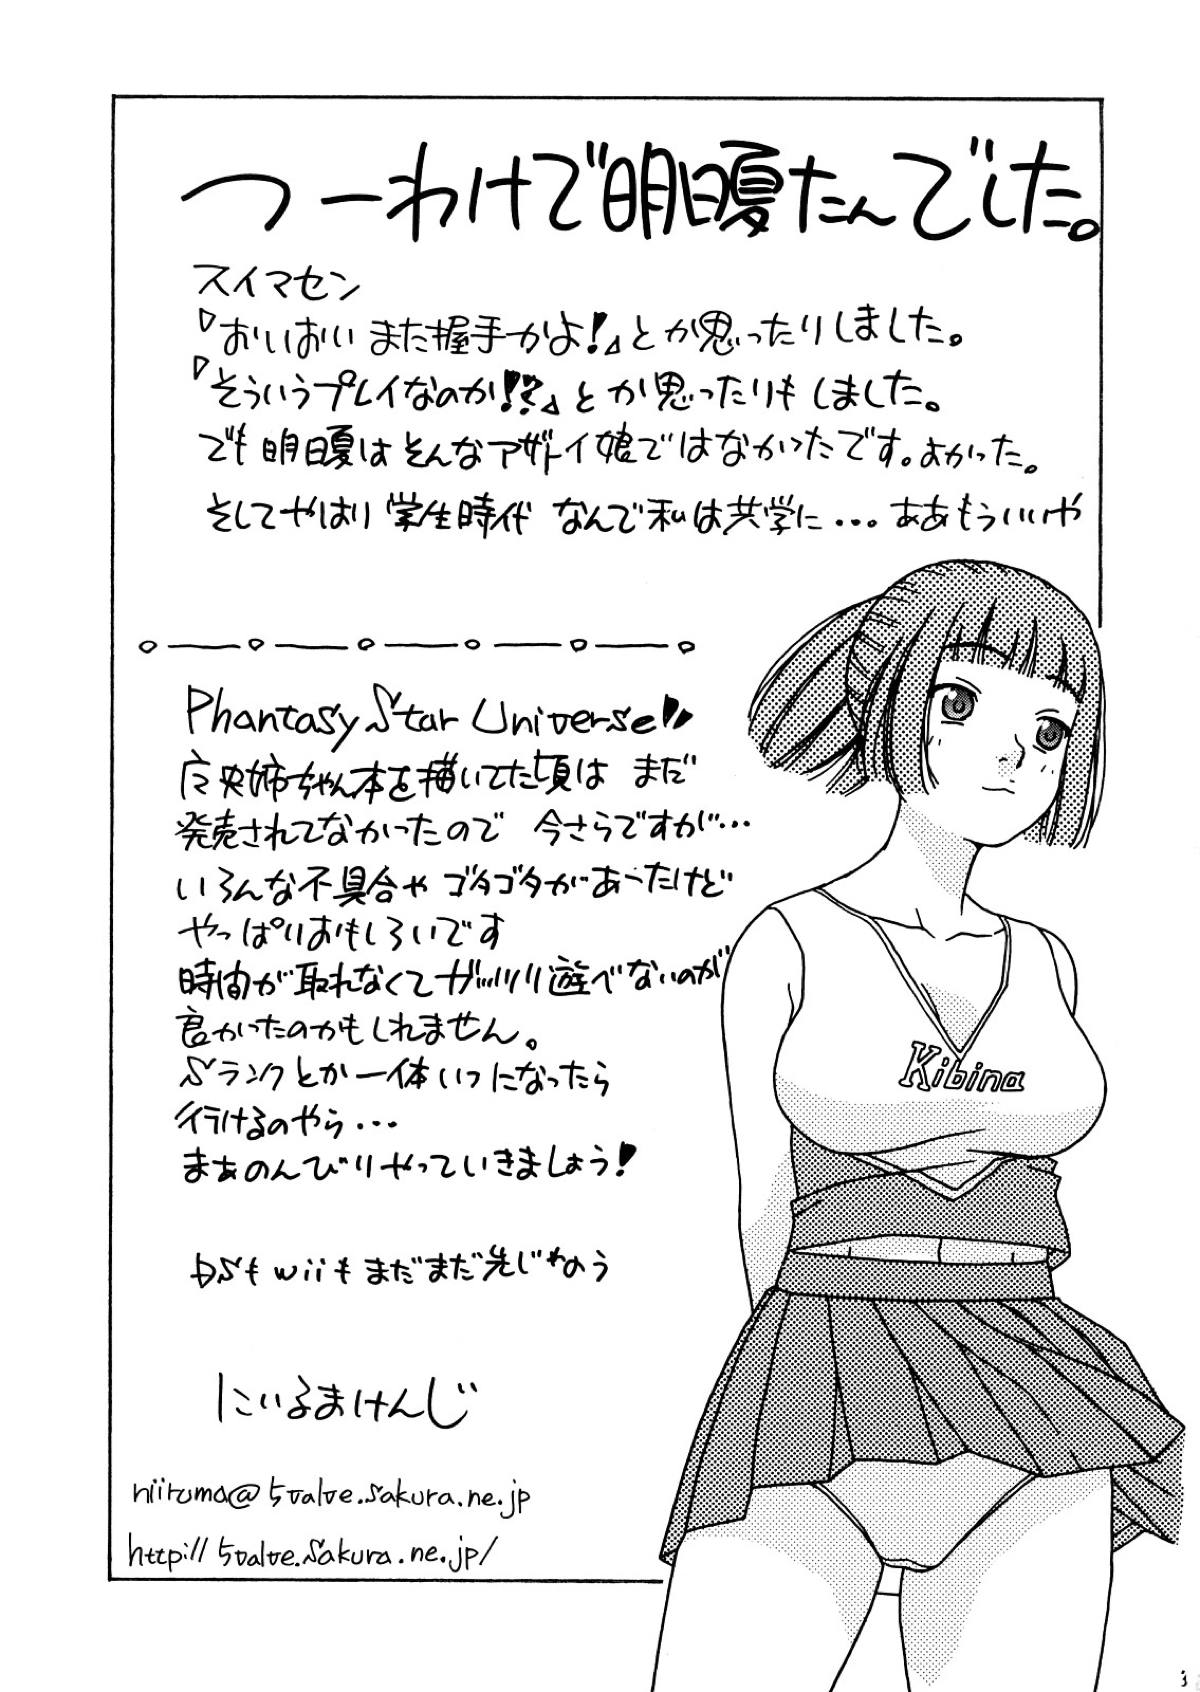 つーわけで明日夏たんでした。
スイマセン
『おいおい また握手かよ!』とか思ったりしました。
『そういうプレイなのか!?』とか思ったりもしました。
でも明日夏はそんなアザトイ娘ではなかったです。よかった。
そしてやはり 学生時代 なんで私は共学に・・・ ああもういいや
Phantasy Star Universe"
真央姉ちゃん本を描いてた頃は まだ
発売されてなかったので 今さらですが・・・
いろんな不具合や ゴタゴタがあったけど
やっぱりおもしろいです
時間が取れなくてガッツリ遊べないのが
良かったのかもしれません。
Sランクとか一体いつになったら
行けるのやら・・・
まぁのんびりやっていきましょう!
DSもwiiもまだまだ先じゃのう
にいるまけんじ
niiruma@5valve.sakura.ne.jp
http://5valve.sakura.ne.jp/
Kibina
3